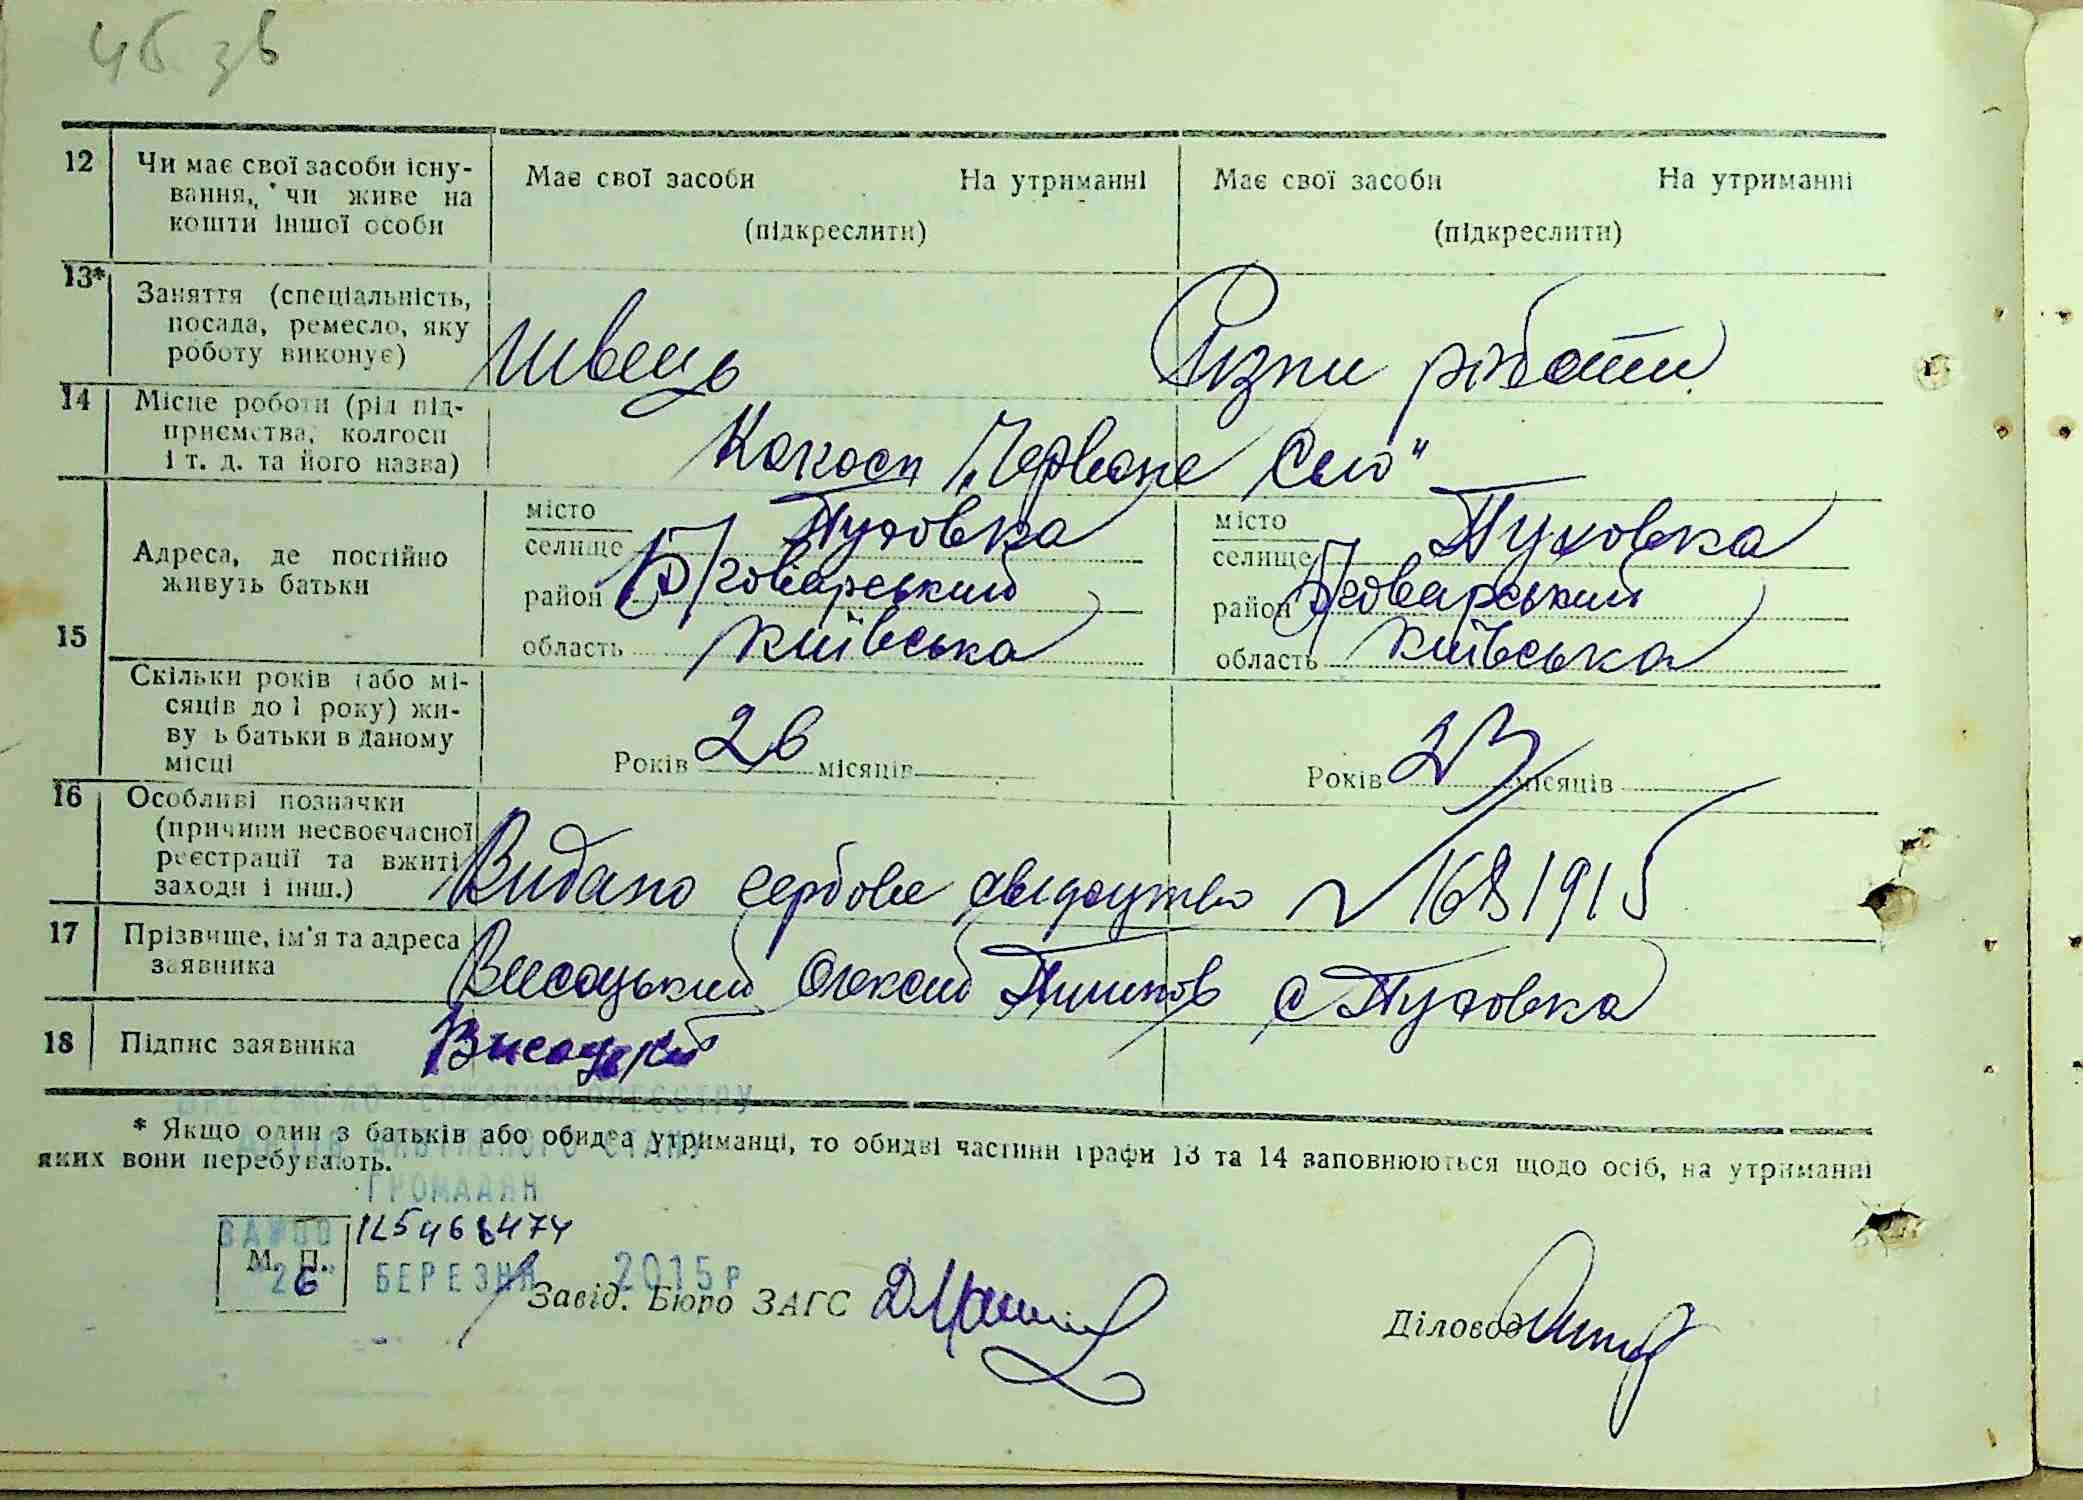 46 зв
12 Чи має свої засоби існування, чи живе на кошти іншої особи
Має свої засоби На утриманні
(підкреслити)
Має свої засоби На утриманні
(підкреслити)
13* Заняття (спеціальність, посада, ремесло, яку роботу виконує)
Швець
Різни роботи
14 Місце роботи (рід підприємства, колгосп і т. д. та його назва)
Колгосп „Червоне Село"
15 Адреса, де постійно живуть батьки
місто
селище Пуховка
район Броварський
область Київська
місто
селище Пуховка
район Броварський
область Київська
Скільки років (або місяців до 1 року) живуть батьки в даному місці
Років 26 місяців
Років 23 місяців
16 Особливі позначки (причини несвоєчасної реєстрації та вжиті заходи і інш.)
Видано гербове свідоцтво
17 Прізвище, ім'я та адреса заявника
Висоцький Олексій с Пуховка
18 Підпис заявника
Висоцький
* Якщо один з батьків або обидва утриманці, то обидві частини графи 13 та 14 заповнюються щодо осіб, на утриманні
яких вони перебувають.
ВНЕСЕНО ДО ДЕРЖАВНОГО РЕЄСТРУ
АКТІВ ЦИВІЛЬНОГО СТАНУ
ГРОМАДЯН
М. П.
26 БЕРЕЗНЯ 2015 р
Завід. Бюро ЗАГС
Діловод